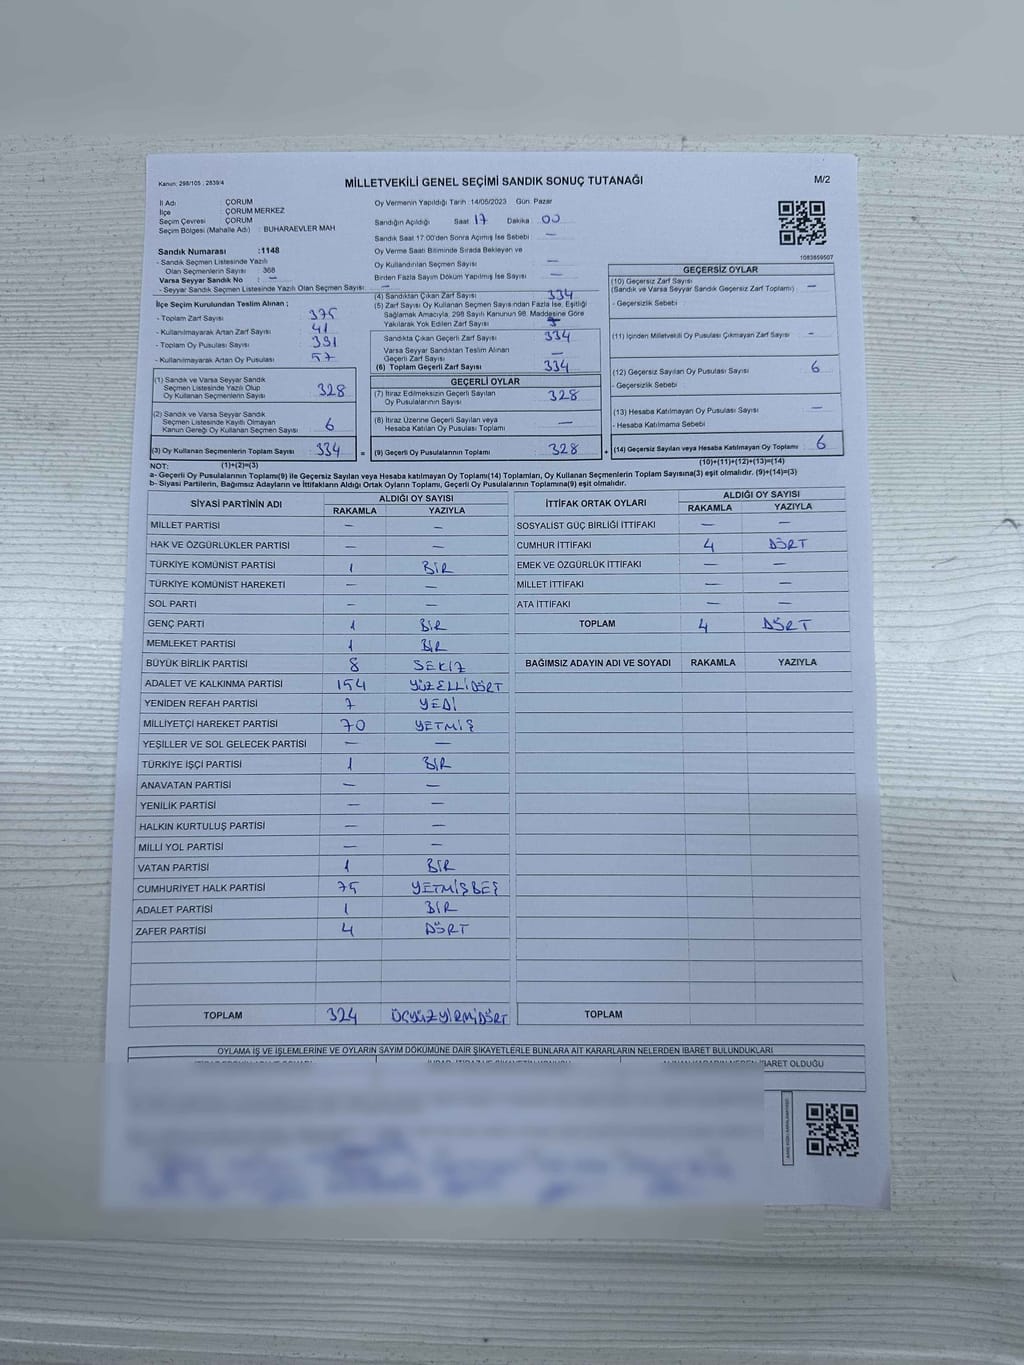 Kanun: 298/105 ; 2839/4
MİLLETVEKİLİ GENEL SEÇİMİ SANDIK SONUÇ TUTANAĞI
M/2
İl Adı : ÇORUM
İlçe : ÇORUM MERKEZ
Seçim Çevresi : ÇORUM
Seçim Bölgesi (Mahalle Adı) : BUHARAEVLER MAH
Sandık Numarası :1148
- Sandık Seçmen Listesinde Yazılı
Olan Seçmenlerin Sayısı : 368
Varsa Seyyar Sandık No : —
- Seyyar Sandık Seçmen Listesinde Yazılı Olan Seçmen Sayısı: —
İlçe Seçim Kurulundan Teslim Alınan ;
- Toplam Zarf Sayısı 375
- Kullanılmayarak Artan Zarf Sayısı 41
- Toplam Oy Pusulası Sayısı 391
- Kullanılmayarak Artan Oy Pusulası 57
(1) Sandık ve Varsa Seyyar Sandık
Seçmen Listesinde Yazılı Olup
Oy Kullanan Seçmenlerin Sayısı 328
(2) Sandık ve Varsa Seyyar Sandık
Seçmen Listesinde Kayıtlı Olmayan
Kanun Gereği Oy Kullanan Seçmen Sayısı 6
(3) Oy Kullanan Seçmenlerin Toplam Sayısı 334 =
Oy Vermenin Yapıldığı Tarih :14/05/2023 Gün: Pazar
Sandığın Açıldığı Saat 17 Dakika 00
Sandık Saat 17:00'den Sonra Açılmış İse Sebebi : —
Oy Verme Saati Bitiminde Sırada Bekleyen ve
Oy Kullandırılan Seçmen Sayısı —
Birden Fazla Sayım Döküm Yapılmış İse Sayısı —
(4) Sandıktan Çıkan Zarf Sayısı 334
(5) Zarf Sayısı Oy Kullanan Seçmen Sayısından Fazla İse, Eşitliği
Sağlamak Amacıyla, 298 Sayılı Kanunun 98. Maddesine Göre
Yakılarak Yok Edilen Zarf Sayısı
Sandıkta Çıkan Geçerli Zarf Sayısı 334
Varsa Seyyar Sandıktan Teslim Alınan
Geçerli Zarf Sayısı —
(6) Toplam Geçerli Zarf Sayısı 334
GEÇERLİ OYLAR
(7) İtiraz Edilmeksizin Geçerli Sayılan
Oy Pusulalarının Sayısı 328
(8) İtiraz Üzerine Geçerli Sayılan veya
Hesaba Katılan Oy Pusulası Toplamı —
(9) Geçerli Oy Pusulalarının Toplamı 328 +
1083859507
GEÇERSİZ OYLAR
(10) Geçersiz Zarf Sayısı
(Sandık ve Varsa Seyyar Sandık Geçersiz Zarf Toplamı) —
- Geçersizlik Sebebi
(11) İçinden Milletvekili Oy Pusulası Çıkmayan Zarf Sayısı —
(12) Geçersiz Sayılan Oy Pusulası Sayısı 6
- Geçersizlik Sebebi
(13) Hesaba Katılmayan Oy Pusulası Sayısı —
- Hesaba Katılmama Sebebi
(14) Geçersiz Sayılan veya Hesaba Katılmayan Oy Toplamı 6
NOT: (1)+(2)=(3) (10)+(11)+(12)+(13)=(14)
a- Geçerli Oy Pusulalarının Toplamı(9) ile Geçersiz Sayılan veya Hesaba katılmayan Oy Toplamı(14) Toplamları, Oy Kullanan Seçmenlerin Toplam Sayısına(3) eşit olmalıdır. (9)+(14)=(3)
b- Siyasi Partilerin, Bağımsız Adayların ve İttifakların Aldığı Ortak Oyların Toplamı, Geçerli Oy Pusulalarının Toplamına(9) eşit olmalıdır.
SİYASİ PARTİNİN ADI ALDIĞI OY SAYISI
RAKAMLA YAZIYLA
MİLLET PARTİSİ — —
HAK VE ÖZGÜRLÜKLER PARTİSİ — —
TÜRKİYE KOMÜNİST PARTİSİ 1 BİR
TÜRKİYE KOMÜNİST HAREKETİ — —
SOL PARTİ — —
GENÇ PARTİ 1 BİR
MEMLEKET PARTİSİ 1 BİR
BÜYÜK BİRLİK PARTİSİ 8 SEKİZ
ADALET VE KALKINMA PARTİSİ 154 YÜZELLİDÖRT
YENİDEN REFAH PARTİSİ 7 YEDİ
MİLLİYETÇİ HAREKET PARTİSİ 70 YETMİŞ
YEŞİLLER VE SOL GELECEK PARTİSİ — —
TÜRKİYE İŞÇİ PARTİSİ 1 BİR
ANAVATAN PARTİSİ — —
YENİLİK PARTİSİ — —
HALKIN KURTULUŞ PARTİSİ — —
MİLLİ YOL PARTİSİ — —
VATAN PARTİSİ 1 BİR
CUMHURİYET HALK PARTİSİ 75 YETMİŞBEŞ
ADALET PARTİSİ 1 BİR
ZAFER PARTİSİ 4 DÖRT
TOPLAM 324 ÜÇYÜZYİRMİDÖRT
İTTİFAK ORTAK OYLARI ALDIĞI OY SAYISI
RAKAMLA YAZIYLA
SOSYALİST GÜÇ BİRLİĞİ İTTİFAKI — —
CUMHUR İTTİFAKI 4 DÖRT
EMEK VE ÖZGÜRLÜK İTTİFAKI — —
MİLLET İTTİFAKI — —
ATA İTTİFAKI — —
TOPLAM 4 DÖRT
BAĞIMSIZ ADAYIN ADI VE SOYADI RAKAMLA YAZIYLA
TOPLAM
OYLAMA İŞ VE İŞLEMLERİNE VE OYLARIN SAYIM DÖKÜMÜNE DAİR ŞİKAYETLERLE BUNLARA AİT KARARLARIN NELERDEN İBARET BULUNDUKLARI
ALINAN KARARIN NEDEN İBARET OLDUĞU